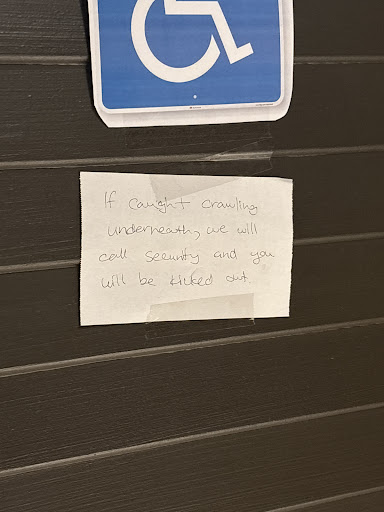 If caught crawling
underneath, we will
call security and you
will be kicked out.